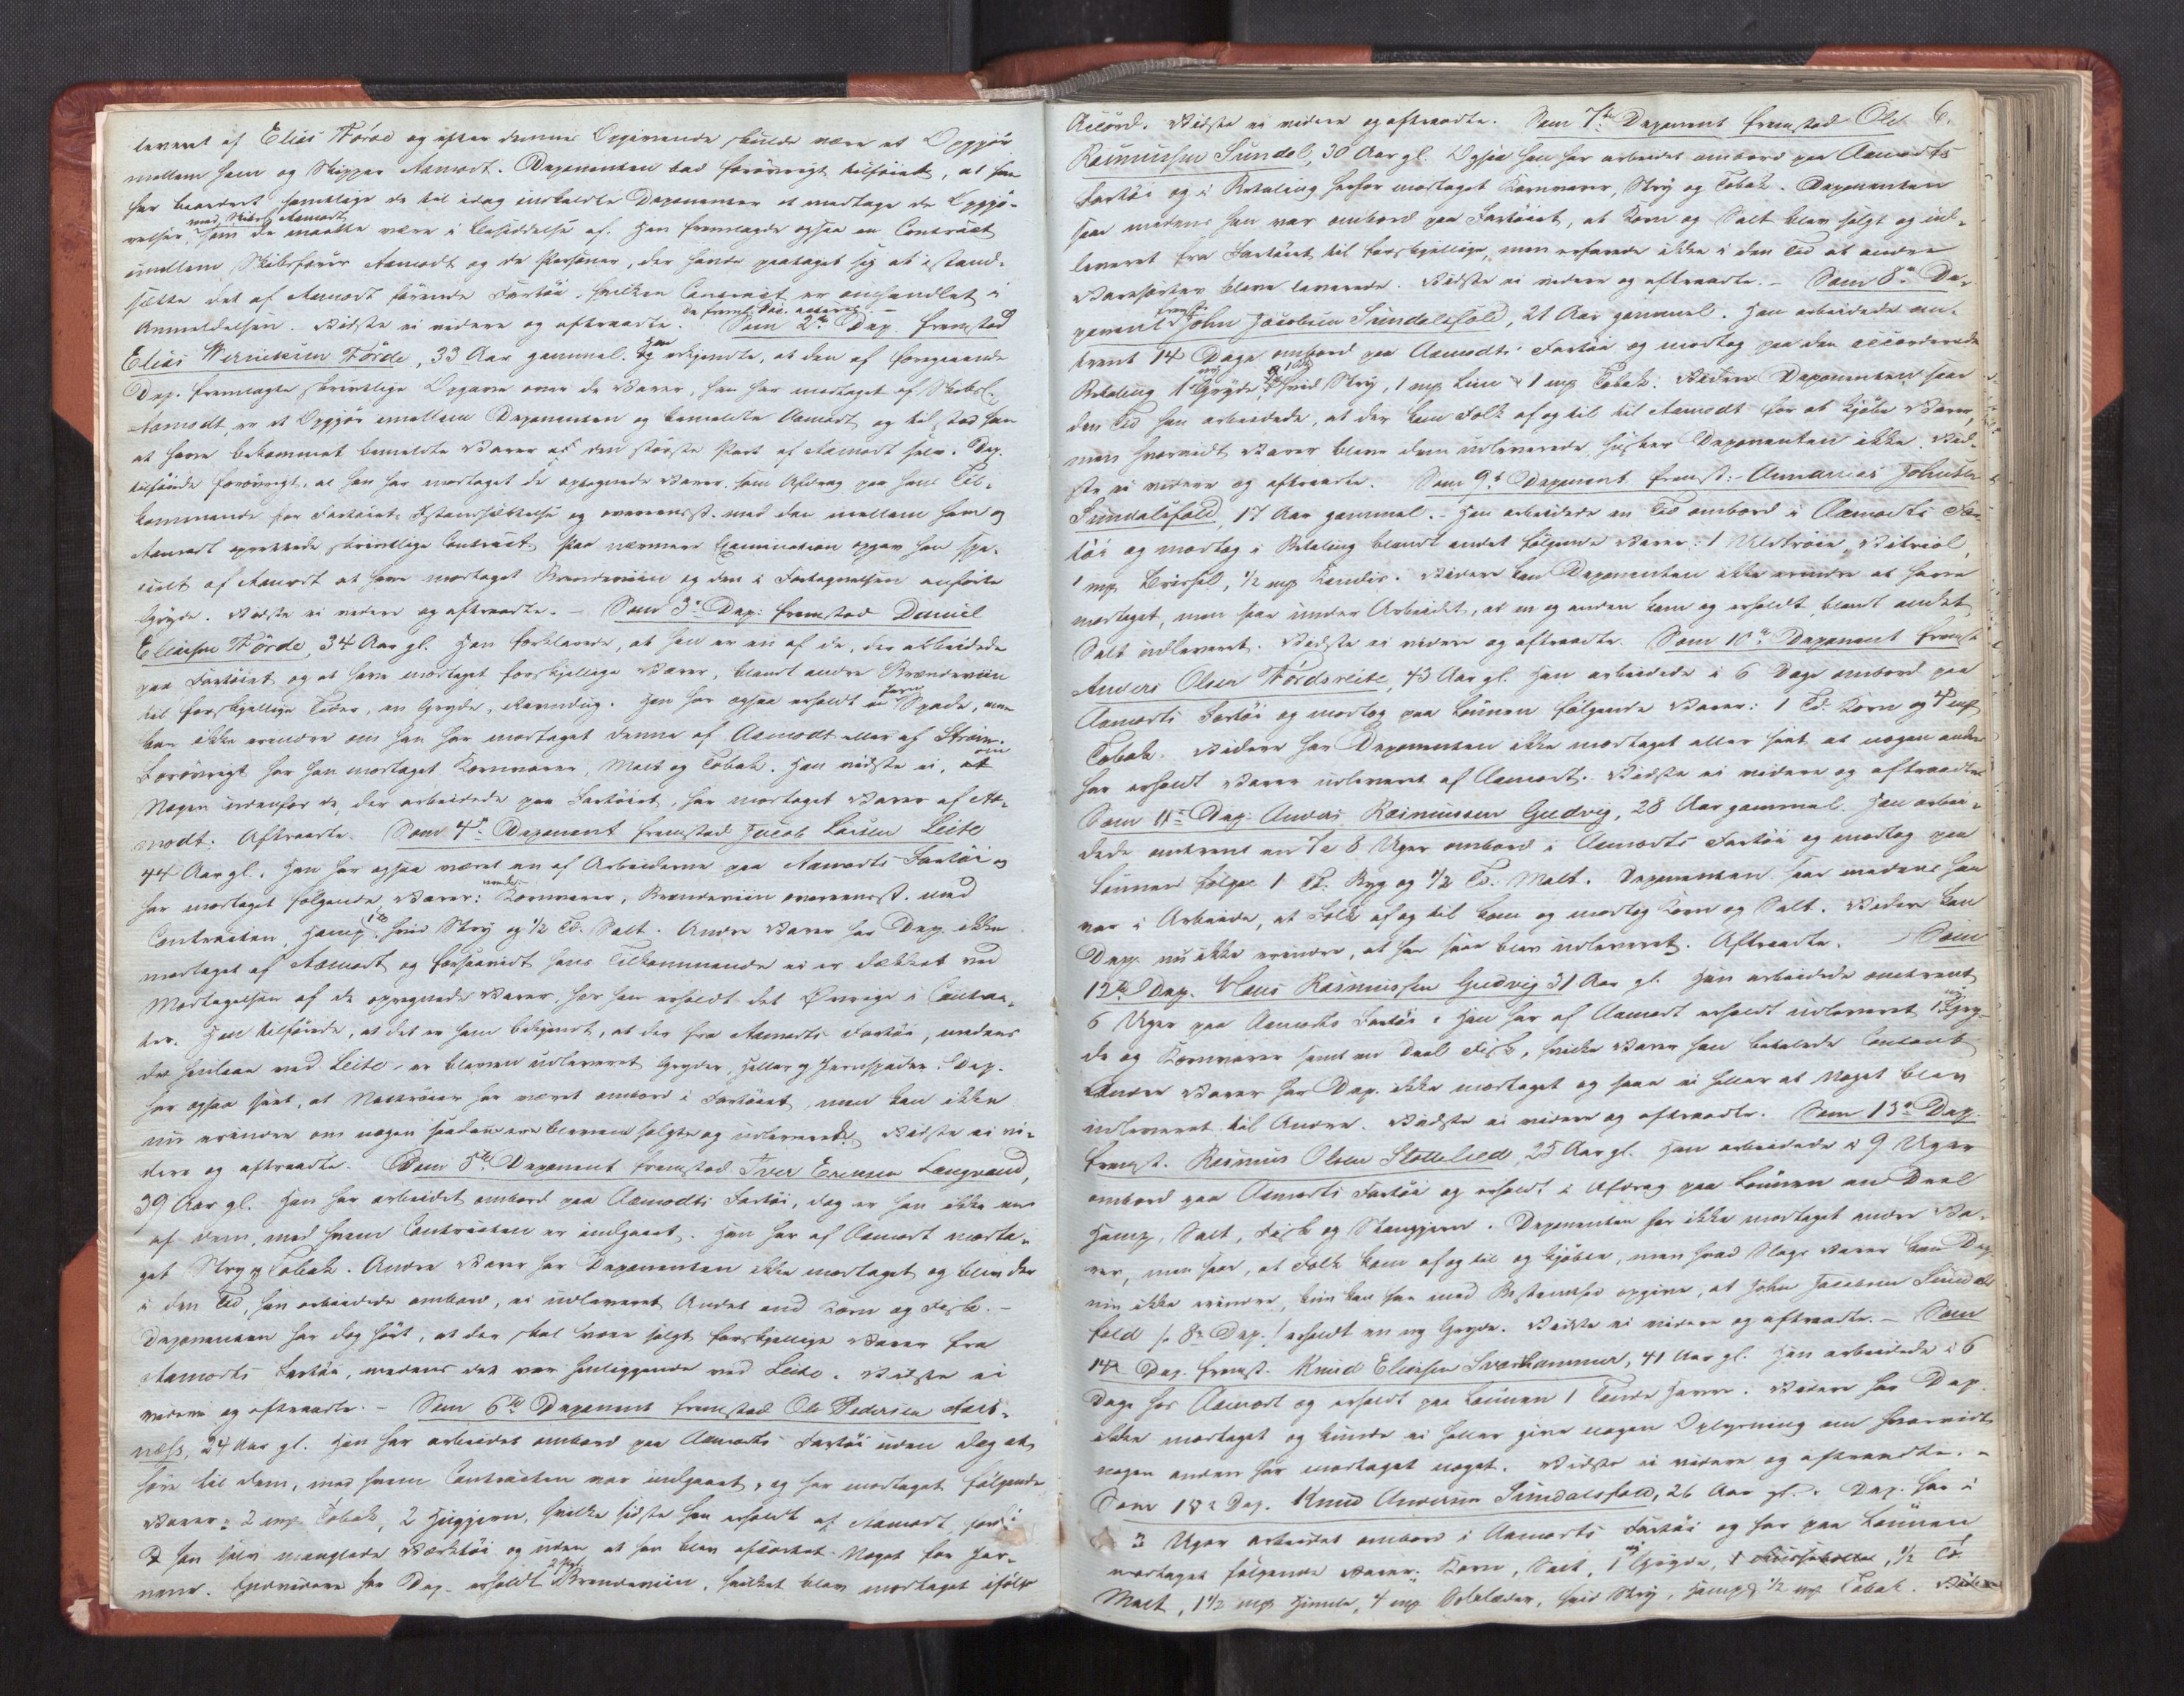 leveret af Elias Förde og efter dennes Opgivende skulde være et Opgjör
mellem ham og Skipper Aamodt. Deponenten bad forövrigt tilföiet, at han
har beordret samtlige de til idag indkaldte Deponenter at medtage de Opgjö-
relser med Skibsf. Aamodt, som de maatte være i Besiddelse af. Han fremlagde ogsaa en Contract
imellem Skibsförer Aamodt og de Personer, der havde paataget sig at istand-
sætte det af Aamodt förende Fartöi, hvilken Contract er omhandlet i
Anmeldelsen. Vidste ei videre og aftraadte. Som 2de Dep. fremstod
Elias Förde, 33 Aar gammel. Han erkjendte, at den af foregaaende
Dep. fremlagte skriftlige Opgave over de Varer, han har modtaget af Skibsf.
Aamodt, er et Opgjör imellem Deponenten og bemeldte Aamodt og tilstod han
at have bekommet bemeldte Varer den störste Part af Aamodt selv. Dep.
tilföiede forövrigt, at han har modtaget de opregnede Varer som Afdrag paa hans Til-
kommende for Fartöiets Istandsættelse og overensst. med den mellem ham og
Aamodt oprettede skriftlige Contract. Paa nærmere Examination opgav han spe-
cielt af Aamodt at have modtaget Brændeviin og den i Fortegnelsen anförte
Gryde. Vidste ei videre og aftraadte. – Som 3die Dep. fremstod Daniel
Eliasen Förde, 34 Aar gl. Han forklarede, at han er en af de, der arbeidede
paa Fartöiet og at have modtaget forskjellige Varer, blandt andre Brændeviin
til forskjellige Tider, en Gryde, Ravndug. Han har ogsaa erholdt en Jern Spade, men
kan ikke erindre om han har modtaget denne af Aamodt eller af
Forövrigt har han modtaget Kornvarer, Malt og Tobak. Han vidste ei, om
Nogen udenfor de, der arbeidede paa Fartöiet, har modtaget Varer af Aa-
modt. Aftraadte. Som 4de Deponent fremstod Jacob Larsen Leite
44 Aar gl. Han har ogsaa været en af Arbeiderne paa Aamodts Fartöi og
har modtaget fölgende Varer: Kornvarer, Brændeviin overensst. med
Contracten, Hamp, hvid Stry og 1/2 Td. Salt. Andre Varer har Dep. ikke
modtaget af Aamodt og forsaavidt hans Tilkommende ei er dækket ved
Modtagelsen af de opregnede Varer, har han erholdt det Övrige i Contan-
ter. Han tilföiede, at det er ham bekjendt, at der fra Aamodts Fartöi, medens
det henlaae ved Leite, er bleven udleveret Gryder, Heller og Jernspader. Dep.
har ogsaa seet, at Nattröier har været ombord i Fartöiet, men kan ikke
nu erindre om nogen saadan ere blevne solgte og udleverede. Vidste ei vi-
dere og aftraadte. Som 5te Deponent fremstod Iver Ericsen Langvand,
39 Aar gl. Han har arbeidet ombord paa Aamodts Fartöi, dog er han ikke en
af dem, med hvem Contracten er indgaaet. Han har af Aamodt modta-
get Stry og Tobak. Andre Varer har Deponenten ikke modtaget og blev der
i den Tid, han arbeidede ombord, ei udleveret Andet end Korn og Fisk. –
Deponenten har dog hört, at der skal være solgt forskjellige Varer fra
Aamodts Fartöi, medens det var henliggende ved Leite. Vidste ei
videre og aftraadte. – Som 6te Deponent fremstod Ole Pedersen
næss, 24 Aar gl. Han har arbeidet ombord paa Aamodts Fartöi uden dog at
höre til dem, med hvem Contracten var indgaaet, og har modtaget fölgende
Varer: 2 mp Tobak, 2 Huggjern, hvilke sidste han erholdt af Aamodt, fordi
han selv manglede Værktöi og uden at han blev afkortet Noget for Jer-
nene. Endvidere har Dep. erholdt Brændeviin, hvilket blev modtaget ifölge
Accord. Vidste ei videre og aftraadte. Som 7de Deponent fremstod Ole 6.
Rasmussen Sundal, 30 Aar gl. Ogsaa han har arbeidet ombord paa Aamodts
Fartöi og i Betaling herfor modtaget Kornvarer, Stry og Tobak. Deponenten
saae medens han var ombord paa Fartöiet, at Korn og Salt blev solgt og ud-
leveret fra Fartöiet til forskjellige, men erfarede ikke i den Tid at andre
Varesorter bleve leverede. Vidste ei videre og aftraadte. – Som 8de De-
ponent fremst. John Jacobsen Sundalsfold, 21 Aar gammel. Han arbeidede om-
trent 14 Dage ombord paa Aamodts Fartöi og modtog paa den accorderede
Betaling 1 ny Gryde, hvid Stry, 1 mp Liim & 1 mp Tobak. Videre Deponenten saae
den Tid han arbeidede, at der kom Folk af og til til Aamodt for at kjöbe Varer,
men hvorvidt Varer bleve dem udleverede, husker Deponenten ikke. Vid-
ste ei videre og aftraadte. Som 9de Deponent fremst: Annanias Johnsen
Sundalsfold, 17 Aar gammel. – Han arbeidede en Tid ombord i Aamodts Far-
töi og modtog i Betaling blandt andet fölgende Varer: 1 Uldtröie, Vitriol,
1 mp, 1/2 mp Kandis. Videre kan Deponenten ikke erindre at have
modtaget, men saae under Arbeidet, at en og anden kom og erholdt blandt andet
Salt udleveret. Vidste ei videre og aftraadte. Som 10de Deponent fremst.
Anders Olsen Fördsreite, 43 Aar gl. Han arbeidede i 6 Dage ombord paa
Aamodts Fartöi og modtog paa Lönnen fölgende Varer: 1 Td. Korn og 4 mp
Tobak. Videre har Deponenten ikke modtaget eller seet at nogen anden
har erholdt Varer udleveret af Aamodt. Vidste ei videre og aftraadte.
Som 11te Dep. Anders Rasmussen Gudvig, 28 Aar gammel. Han arbei-
dede omtrent en 7 a 8 Uger ombord i Aamodts Fartöi og modtog paa
Lönnen fölge 1 Td. Byg og 1/2 Td. Malt. Deponenten saae medens han
var i Arbeide, at Folk af og til kom og modtog Korn og Salt. Videre kan
Dep. nu ikke erindre, at han saae blev udleveret. Aftraadte. Som
12te Dep. Claus Rasmussen Gudvig 31 Aar gl. Han arbeidede omtrent
6 Uger paa Aamodts Fartöi. Han har af Aamodt erholdt udleveret 1 ny Gry-
de og Kornvarer samt en Deel Fisk, hvilke Varer han betalede Contant
Andre Varer har Dep. ikke modtaget og saae ei heller at Noget blev
udleveret til Andre. Vidste ei videre og aftraadte. Som 13de Dep.
fremst. Rasmus Olsen Slottelied, 25 Aar gl. Han arbeidede i 9 Uger
ombord paa Aamodts Fartöi og erholdt i Afdrag paa Lönnen en Deel
Hamp, Salt, Fisk og Stangjern. Deponenten har ikke modtaget andre Va-
rer, men saae, at Folk kom af og til og kjöbte, men hvad Slags Varer kan Dep.
nu ikke erindre, kun kan han med Bestemthed opgive, at John Jacobsen Sundals
fold /: 8de Dep. :/ erholdt en ny Gryde. Vidste ei videre og aftraadte. – Som
14de Dep. fremst. Knud Eliasen Svarthammer, 41 Aar gl. Han arbeidede i 6
Dage hos Aamodt og erholdt paa Lönnen 1 Tönde Havre. Videre har Dep.
ikke modtaget og kunde ei heller give nogen Oplysning om hvorvidt
nogen anden har modtaget noget. Vidste ei videre og aftraadte. –
Som 15de Dep. Knud Andersen Sundalsfold, 26 Aar gl. Dep. har i
3 Uger arbeidet ombord i Aamodts Fartöi og har paa Lönnen
modtaget fölgende Varer: Korn, Salt, 1 ny Gryde, 1/2 Td
Malt, 1 1/2 mp Humle, 4 mp Saalelæder, hvid Stry, Hamp & 1/2 mp Tobak. Videre